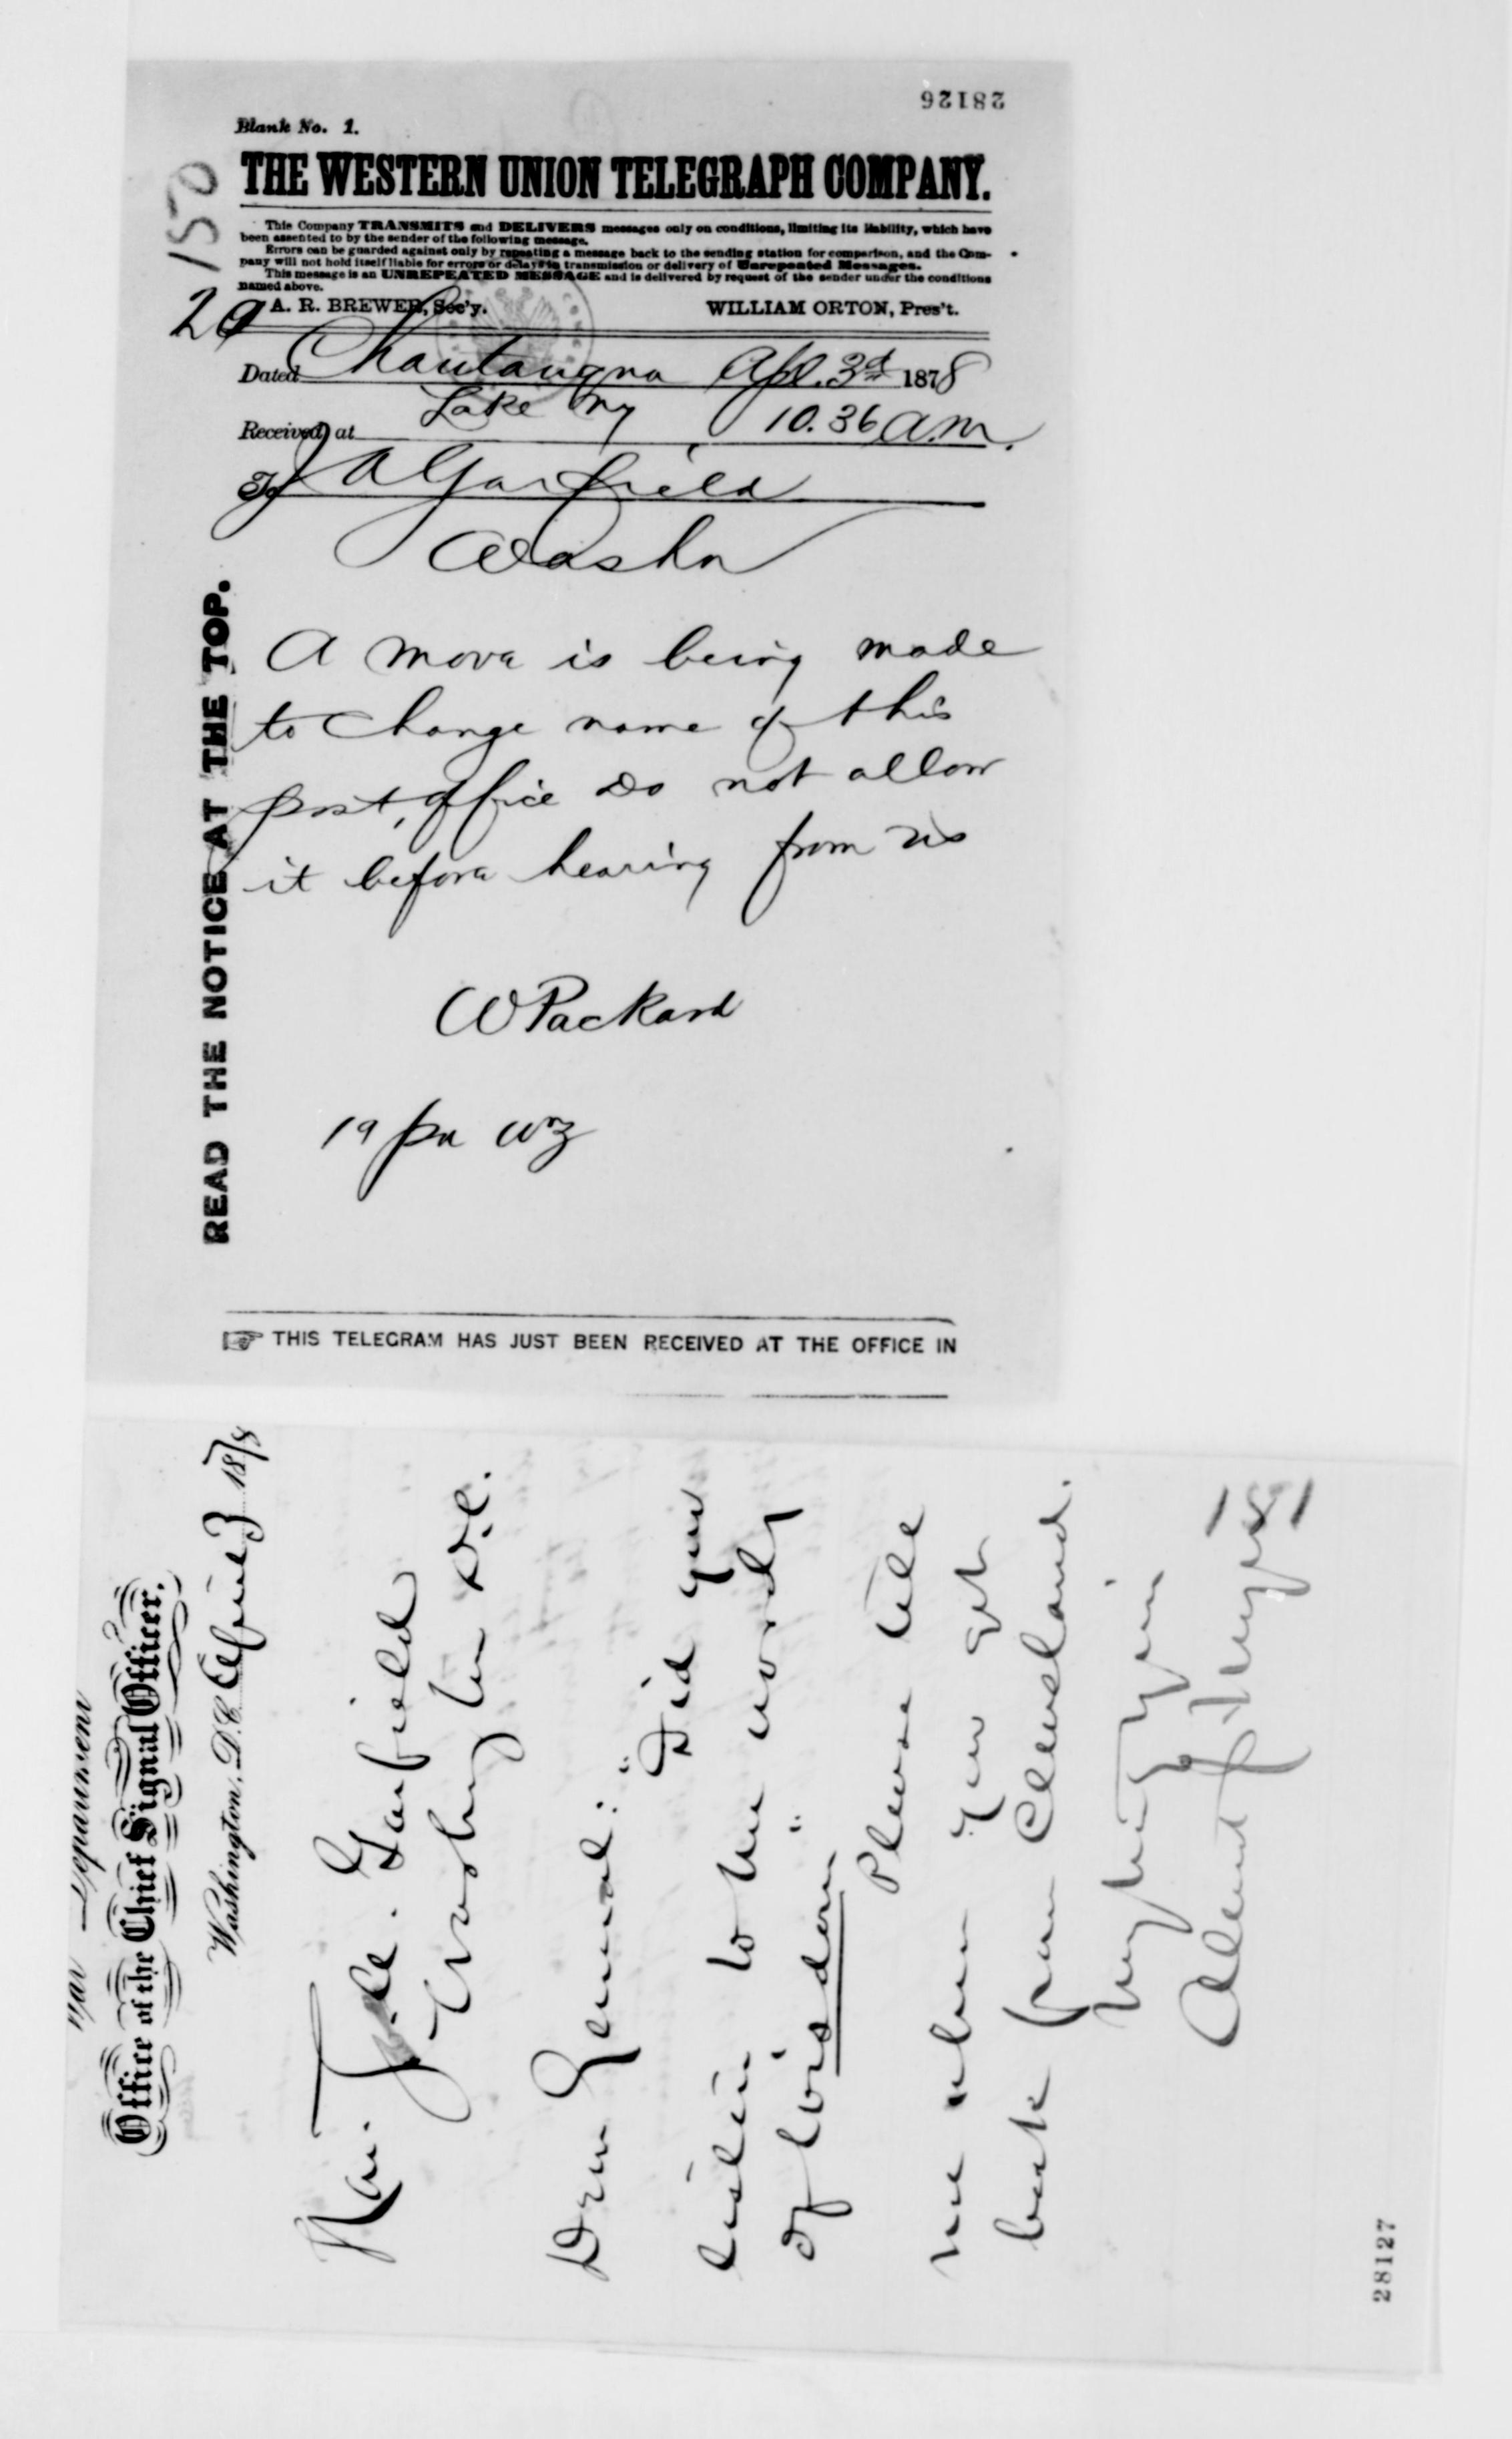 28126
150
Blank No. 1.
THE WESTERN UNION TELEGRAPH COMPANY.
This Company TRANSMITS and DELIVERS messages only on conditions, limiting its liability, which have
been assented to by the sender of the following message.
Errors can be guarded against only by repeating a message back to the sending station for comparison, and the Com-
pany will not hold itself liable for errors or delays in transmission or delivery of Unrepeated Messages.
This message is an UNREPEATED MESSAGE and is delivered by request of the sender under the conditions
named above.
A. R. BREWER, Sec'y. WILLIAM ORTON, Pres't.
Dated Chautauqua Apl. 3d 1878
Lake Ny 10.36 a.m.
Received at
To J A Garfield
Washn
READ THE NOTICE AT THE TOP.
A move is being made
to change name of this
post, office Do not allow
it before hearing from us
W Packard
19 pa
THIS TELEGRAM HAS JUST BEEN RECEIVED AT THE OFFICE IN
War Department
Office of the Chief Signal Officer,
Washington, D.C. April 3 1878
Hon. J. A. Garfield
Washington D.C.
Dear General:
"Did you
listen to the words
of wisdom"
Please tell
me when you get
back from Cleveland.
Very truly yours
181
28127